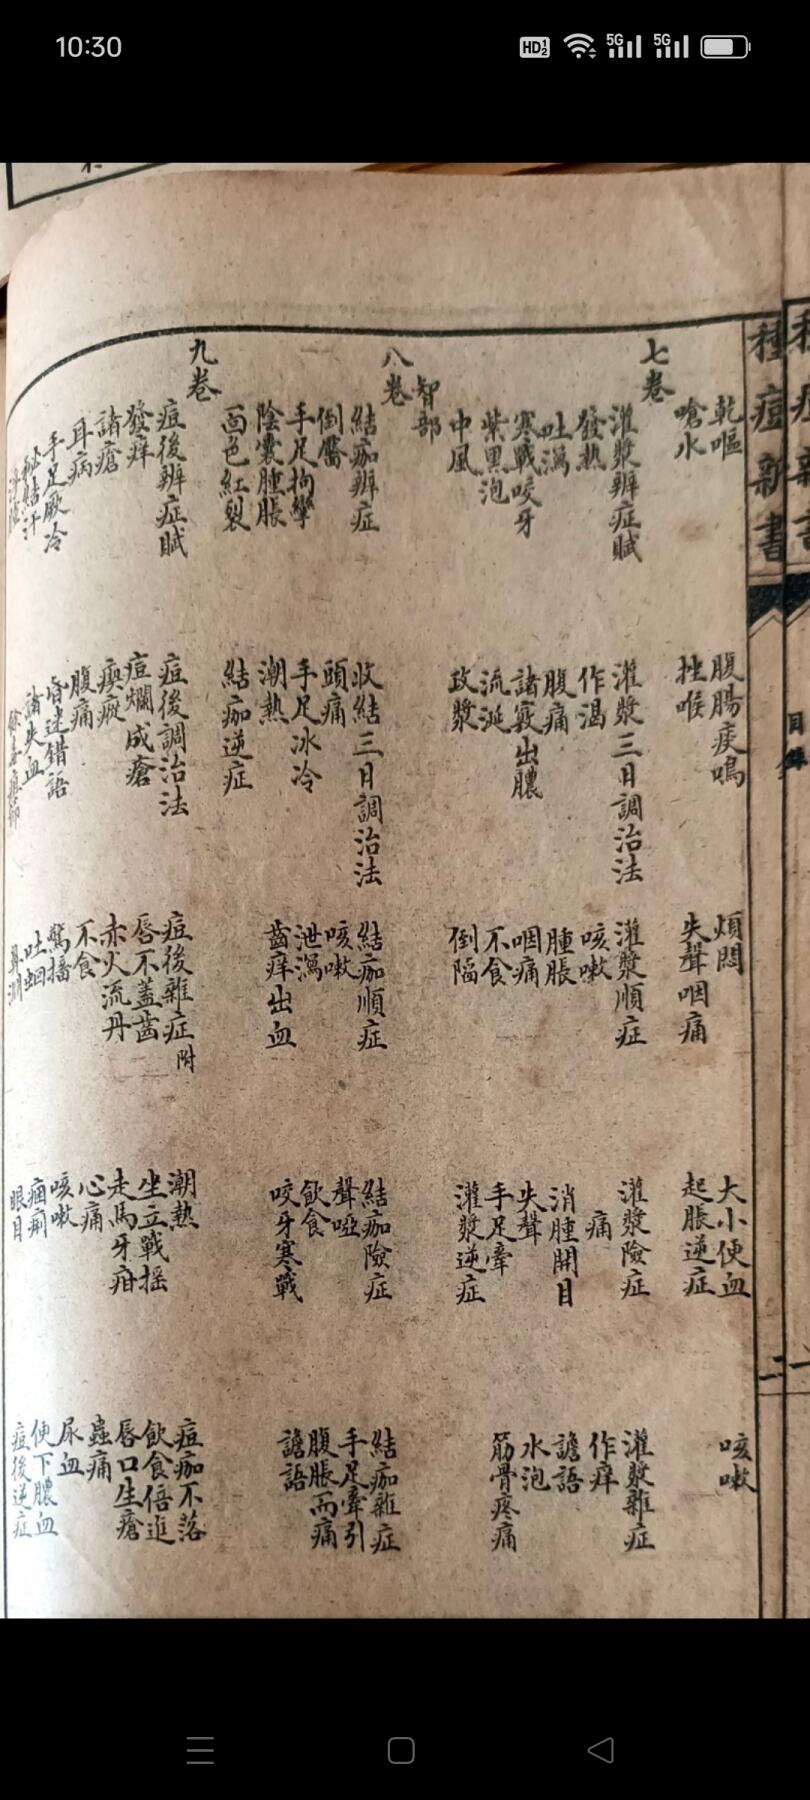 10:30
種痘新書
目錄
乾嘔 腹腸痰鳴 煩悶 大小便血 咳嗽
嗆水 挫喉 失聲咽痛 起脹逆症
七卷
灌漿辨症賦 灌漿三日調治法 灌漿順症 灌漿險症 灌漿雜症
發熱 作渴 咳嗽 痛 作痒
吐瀉 腹痛 腫脹 消腫開目 譫語
寒戰咬牙 諸竅出膿 咽痛 失聲 水泡
紫黑泡 流涎 不食 手足牽 筋骨疼痛
中風 政漿 倒陷 灌漿逆症
智部
八卷
結痂辨症 收結三日調治法 結痂順症 結痂險症 結痂雜症
倒靨 頭痛 咳嗽 聲啞 手足牽引
手足拘攣 手足冰冷 泄瀉 飲食 腹脹而痛
陰囊腫脹 潮熱 齒痒出血 咬牙寒戰 譫語
面色紅裂 結痂逆症
九卷
痘後辨症賦 痘後調治法 痘後雜症附 潮熱 痘痂不落
發痒 痘爛成瘡 唇不蓋齒 坐立戰搖 飲食倍進
諸瘡 瘢 赤火流丹 走馬牙疳 唇口生瘡
耳病 腹痛 不食 心痛 蟲痛
手足厥冷 昏迷錯語 驚搐 咳嗽 尿血
結汗 諸失血 吐蛔 痢 便下膿血
眼目 痘後逆症